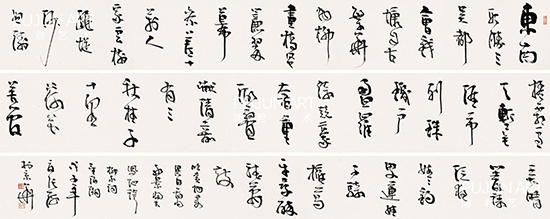 東南
形勝三
吳都
會錢
塘自古
繁華
烟柳
畫橋風
簾翠
幕
參差十
萬人
家雲樹
繞堤
沙
怒濤
捲霜雪
天塹無
涯市
列珠
璣戶
盈羅
綺競豪
奢重
湖疊
巘清嘉
有三
秋桂子
十里
荷花
羌管
弄晴
菱歌
泛夜
嬉嬉釣
叟蓮娃
千騎
擁高
牙乘醉
聽簫
鼓
吟賞烟霞
異日圖將
好景歸去
鳳池誇
柳永詞
望海潮
戊子年
RUJUN ART